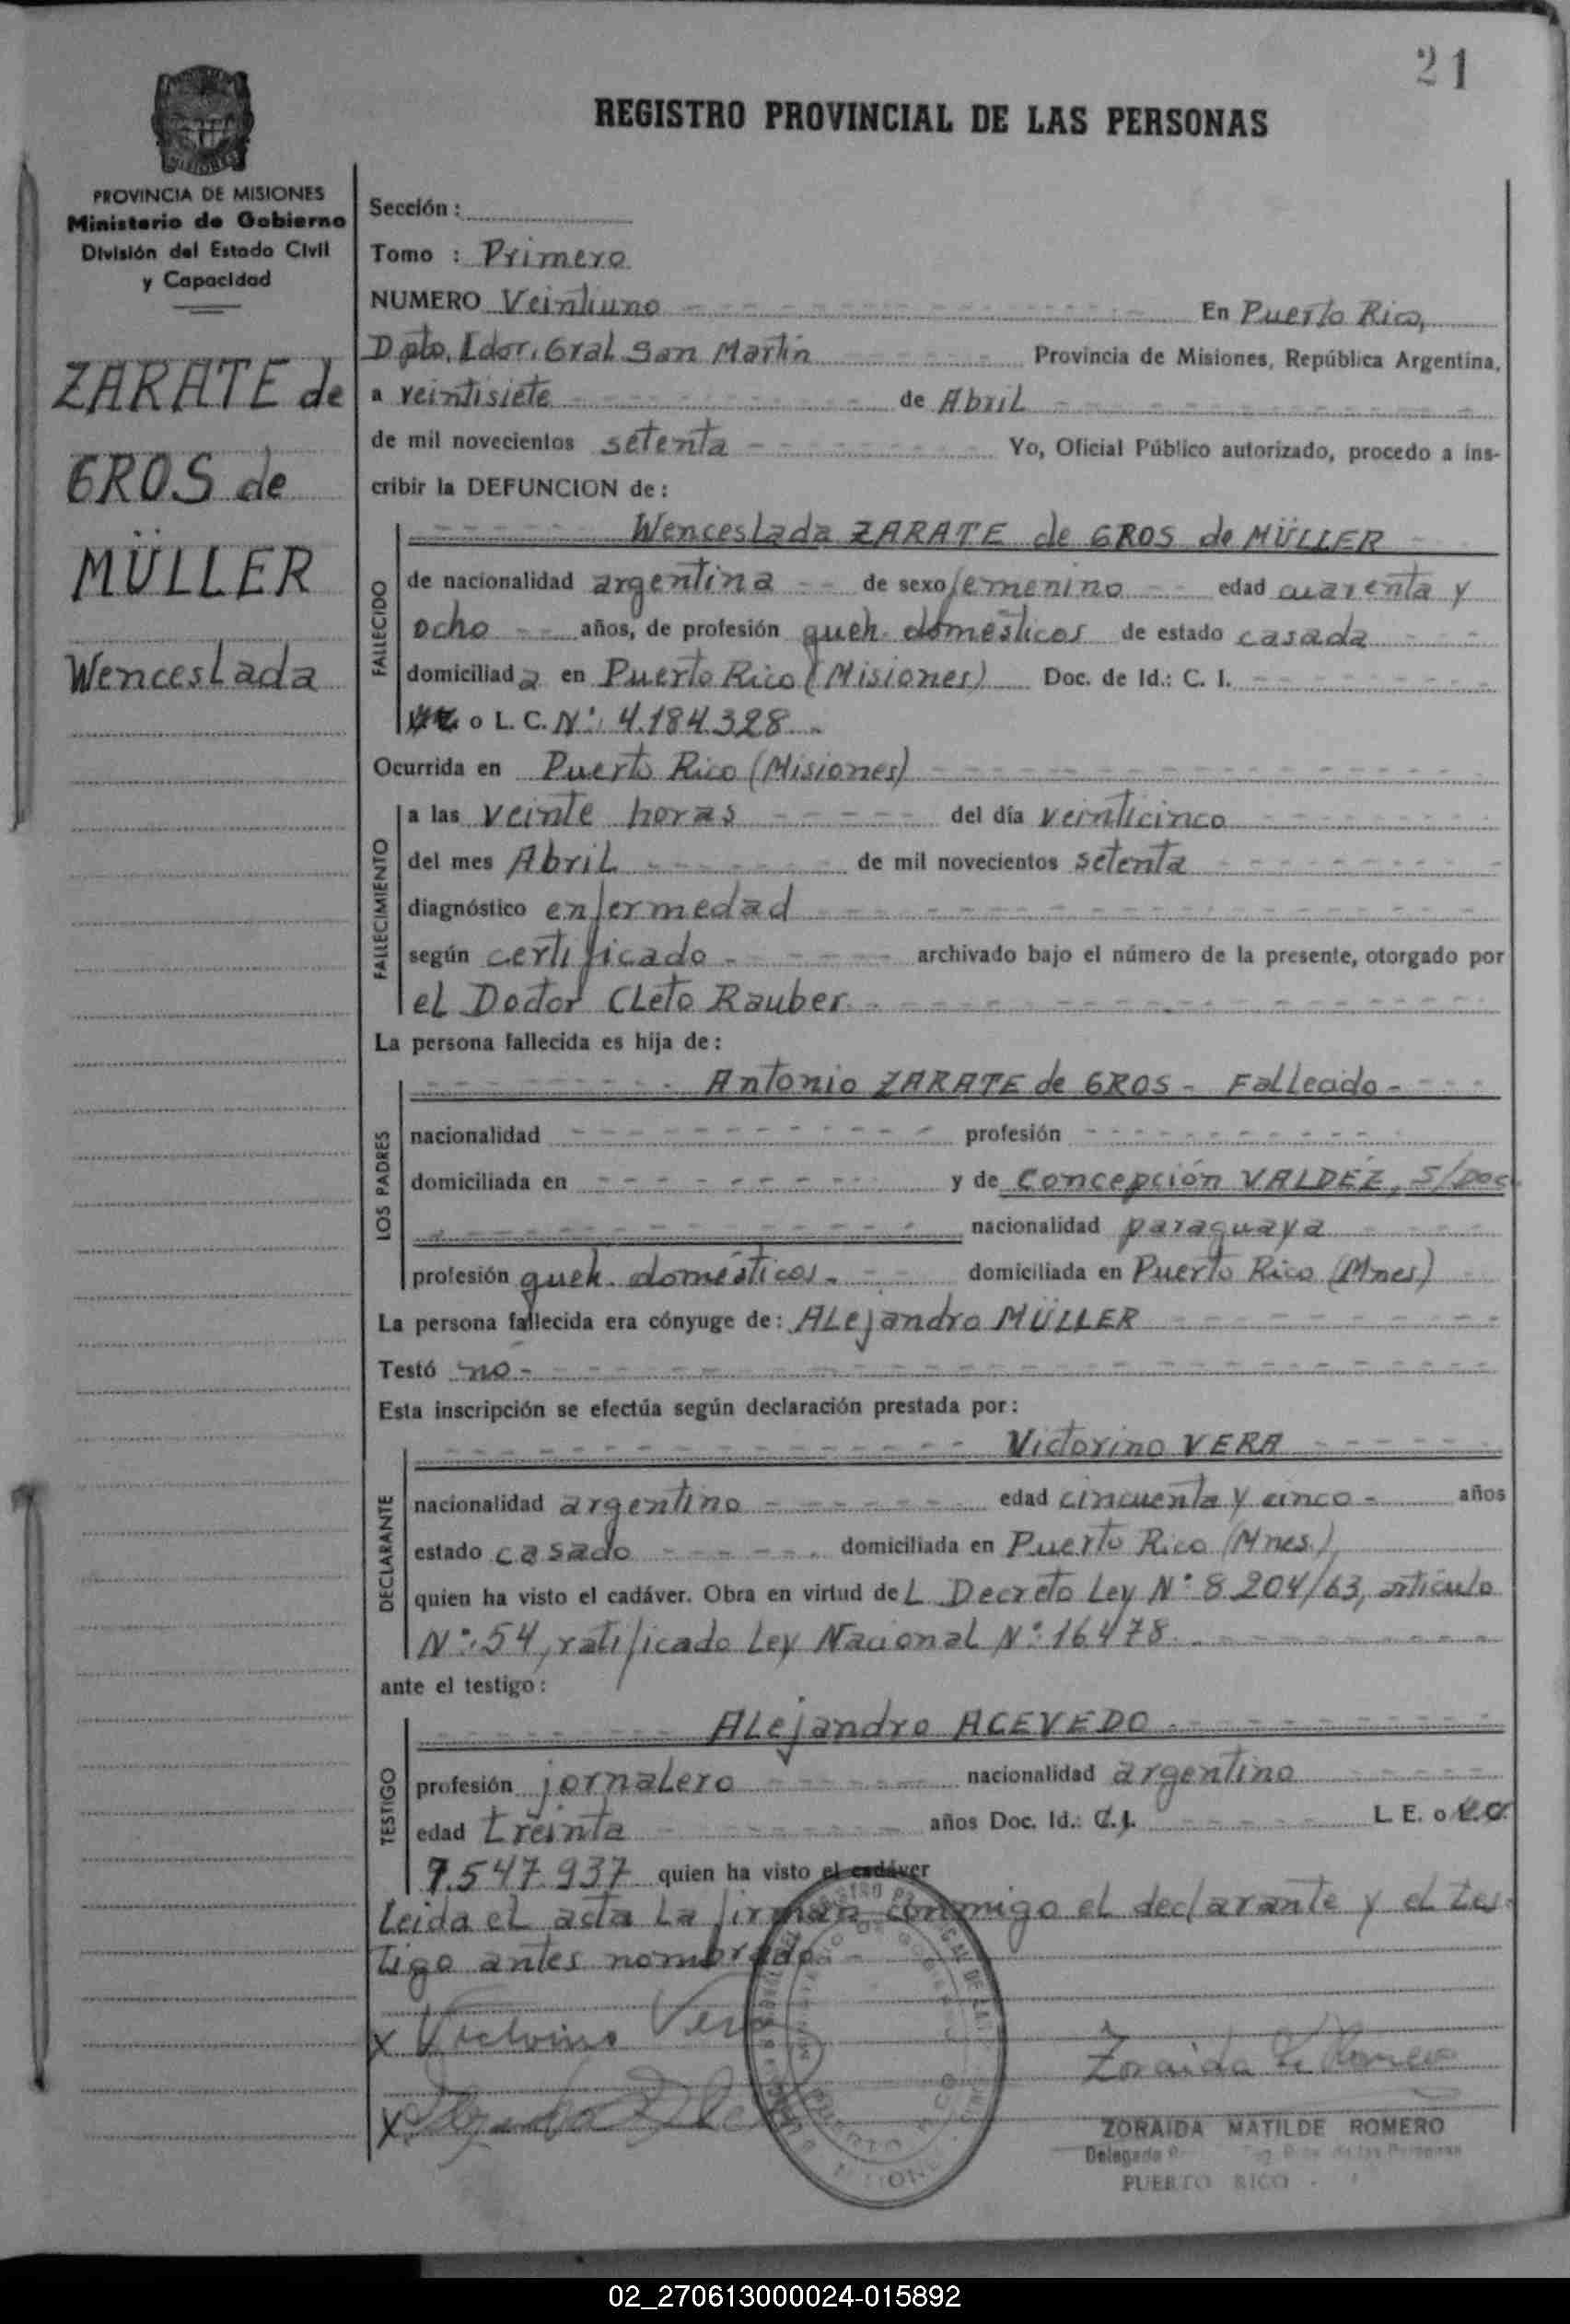 21
REGISTRO PROVINCIAL DE LAS PERSONAS
PROVINCIA DE MISIONES
Ministerio de Gobierno
División del Estado Civil
y Capacidad
ZARATE de
GROS de
MÜLLER
Wenceslada
Sección :
Tomo : Primero
NUMERO Veintiuno En Puerto Rico,
Dpto. Ldor. Gral San Martín Provincia de Misiones, República Argentina,
a veintisiete de Abril
de mil novecientos setenta Yo, Oficial Público autorizado, procedo a ins-
cribir la DEFUNCION de :
FALLECIDO
Wenceslada ZARATE de GROS de MÜLLER
de nacionalidad argentina de sexo femenino edad cuarenta y
ocho años, de profesión queh. domésticos de estado casada
domiciliada en Puerto Rico (Misiones) Doc. de Id.: C. I.
o L. C. Nº: 4.184.328.
Ocurrida en Puerto Rico (Misiones)
FALLECIMIENTO
a las veinte horas del día veinticinco
del mes Abril de mil novecientos setenta
diagnóstico enfermedad
según certificado archivado bajo el número de la presente, otorgado por
el Doctor Cleto Rauber.
La persona fallecida es hija de :
LOS PADRES
Antonio ZARATE de GROS - Fallecido -
nacionalidad profesión
domiciliada en y de Concepción VALDÉZ, S/Doc.
nacionalidad paraguaya
profesión queh. domésticos. domiciliada en Puerto Rico (Mnes)
La persona fallecida era cónyuge de : Alejandro MÜLLER
Testó no -
Esta inscripción se efectúa según declaración prestada por :
DECLARANTE
Victorino VERA
nacionalidad argentino edad cincuenta y cinco - años
estado casado domiciliada en Puerto Rico (Mnes.)
quien ha visto el cadáver. Obra en virtud deL Decreto Ley Nº 8.204/63, artículo
Nº: 54, ratificado Ley Nacional Nº 16.478.
ante el testigo :
TESTIGO
Alejandro ACEVEDO.
profesión jornalero nacionalidad argentino
edad treinta años Doc. Id.: C.I. L. E. o L.C.
7.547.937 quien ha visto el cadáver
Leida el acta la firman conmigo el declarante y el tes-
tigo antes nombrado. -
x Victorino Vera
x
Zoraida Romero
ZORAIDA MATILDE ROMERO
PUERTO RICO
02_270613000024-015892